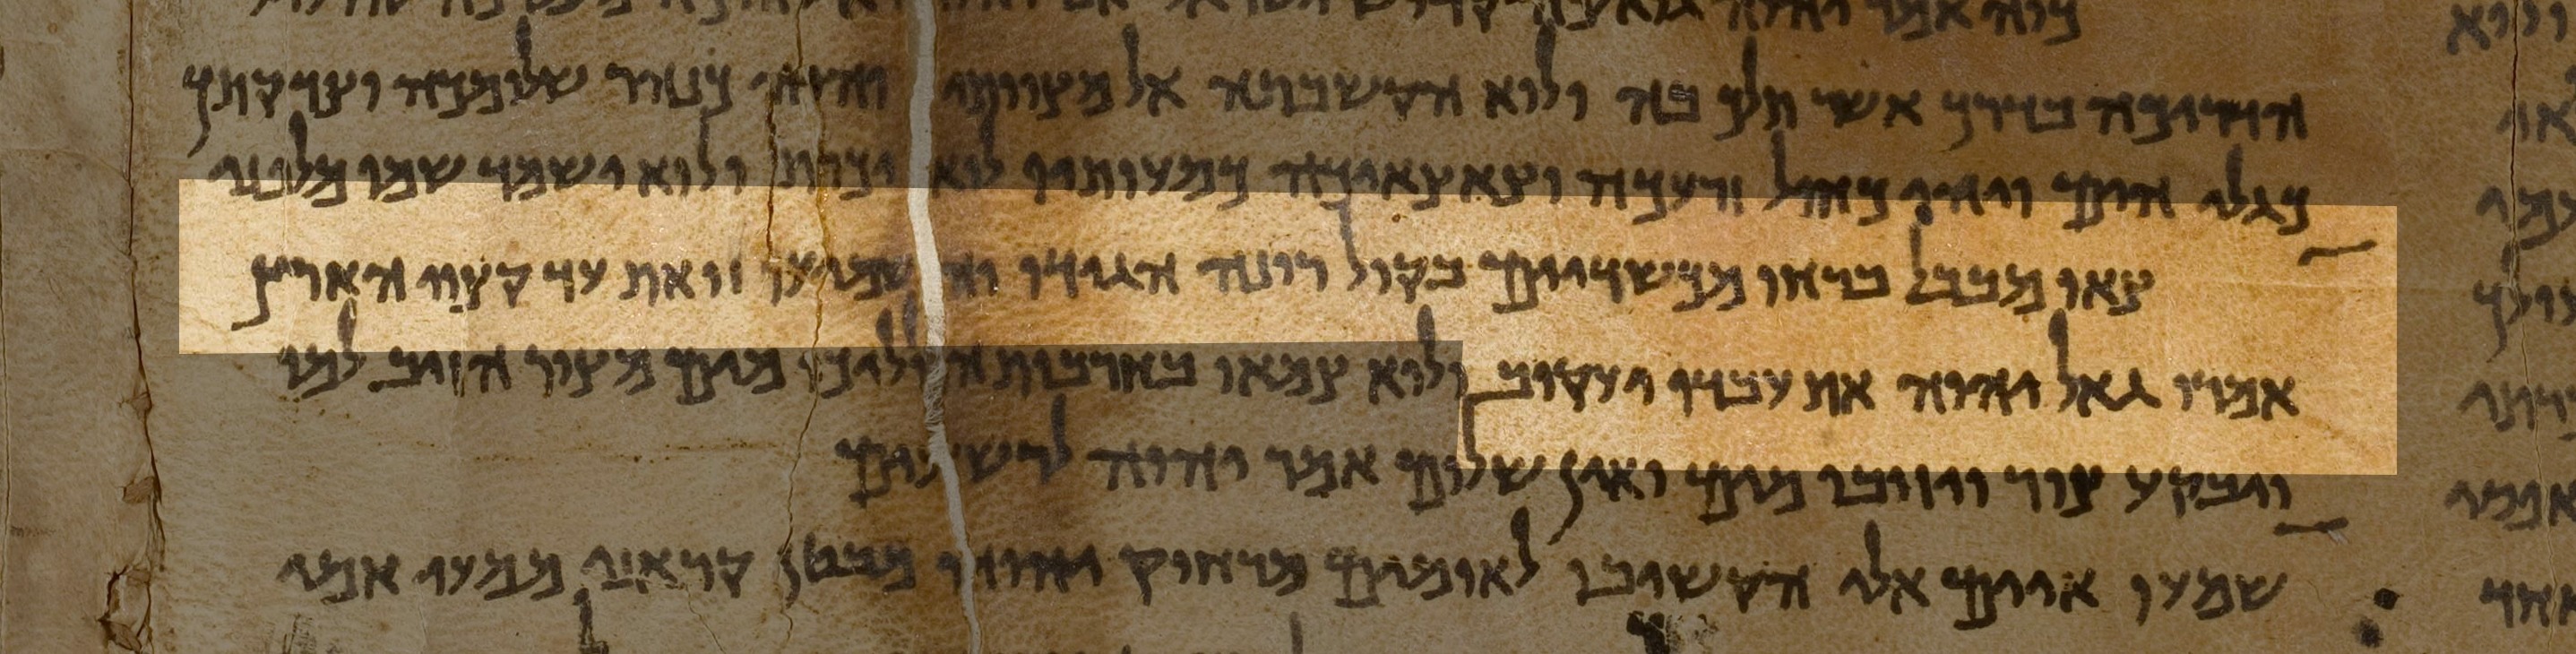 אמר יהוה גואלך קדוש ישראל
הדריכה בדרך אשר תלך בה ולוא הקשבתה אל מצוותי והיה כנהר שלומכה וצדקתך
כגלי הים ויהי כחול זרעכה וצאצאיכה כמעותיו לוא יכרת ולוא ישמד שמו מלפני
צאו מבבל ברחו מכשדיים בקול רונה הגידו השמיעו זואת עד קצוי הארץ
אמרו גאל יהוה את עבדו יעקוב ולוא צמאו בחרבות הוליכו מים מצור הזיב למו
ויבקע צור ויזובו מים ואין שלום אמר יהוה לרשעים
שמעו איים אלי הקשיבו לאומים מרחוק יהוה מבטן קראני ממעי אמי